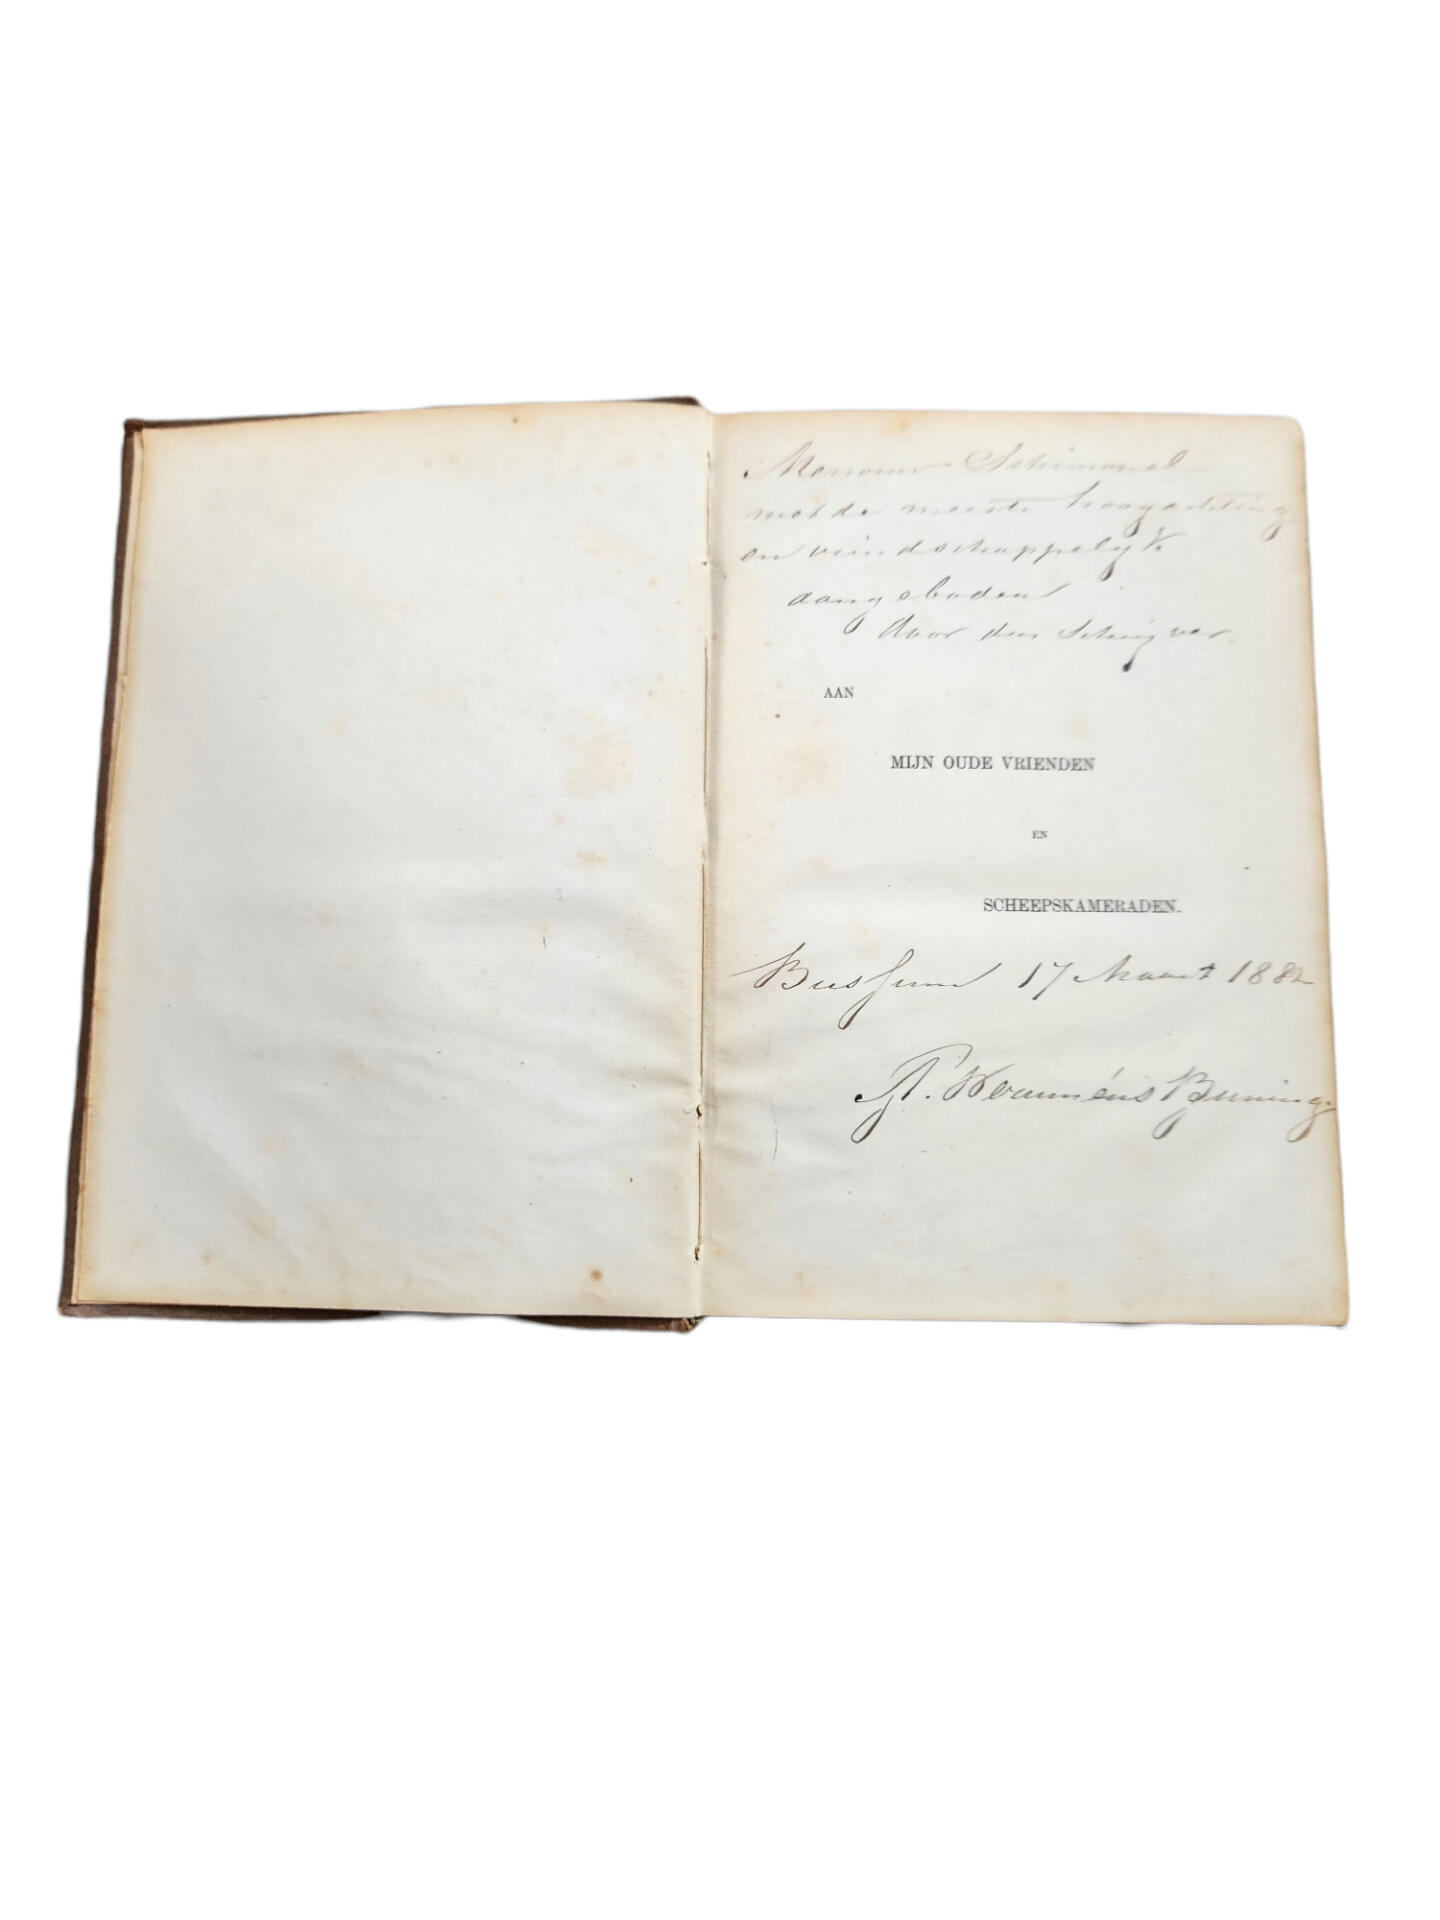 Mevrouw Schimmel
met de meeste hoogachting
en vriendschappelijk
aangeboden
door den Schrijver.
AAN
MIJN OUDE VRIENDEN
EN
SCHEEPSKAMERADEN.
Bussum 17 Maart 1882
A. Werumeús Buning.